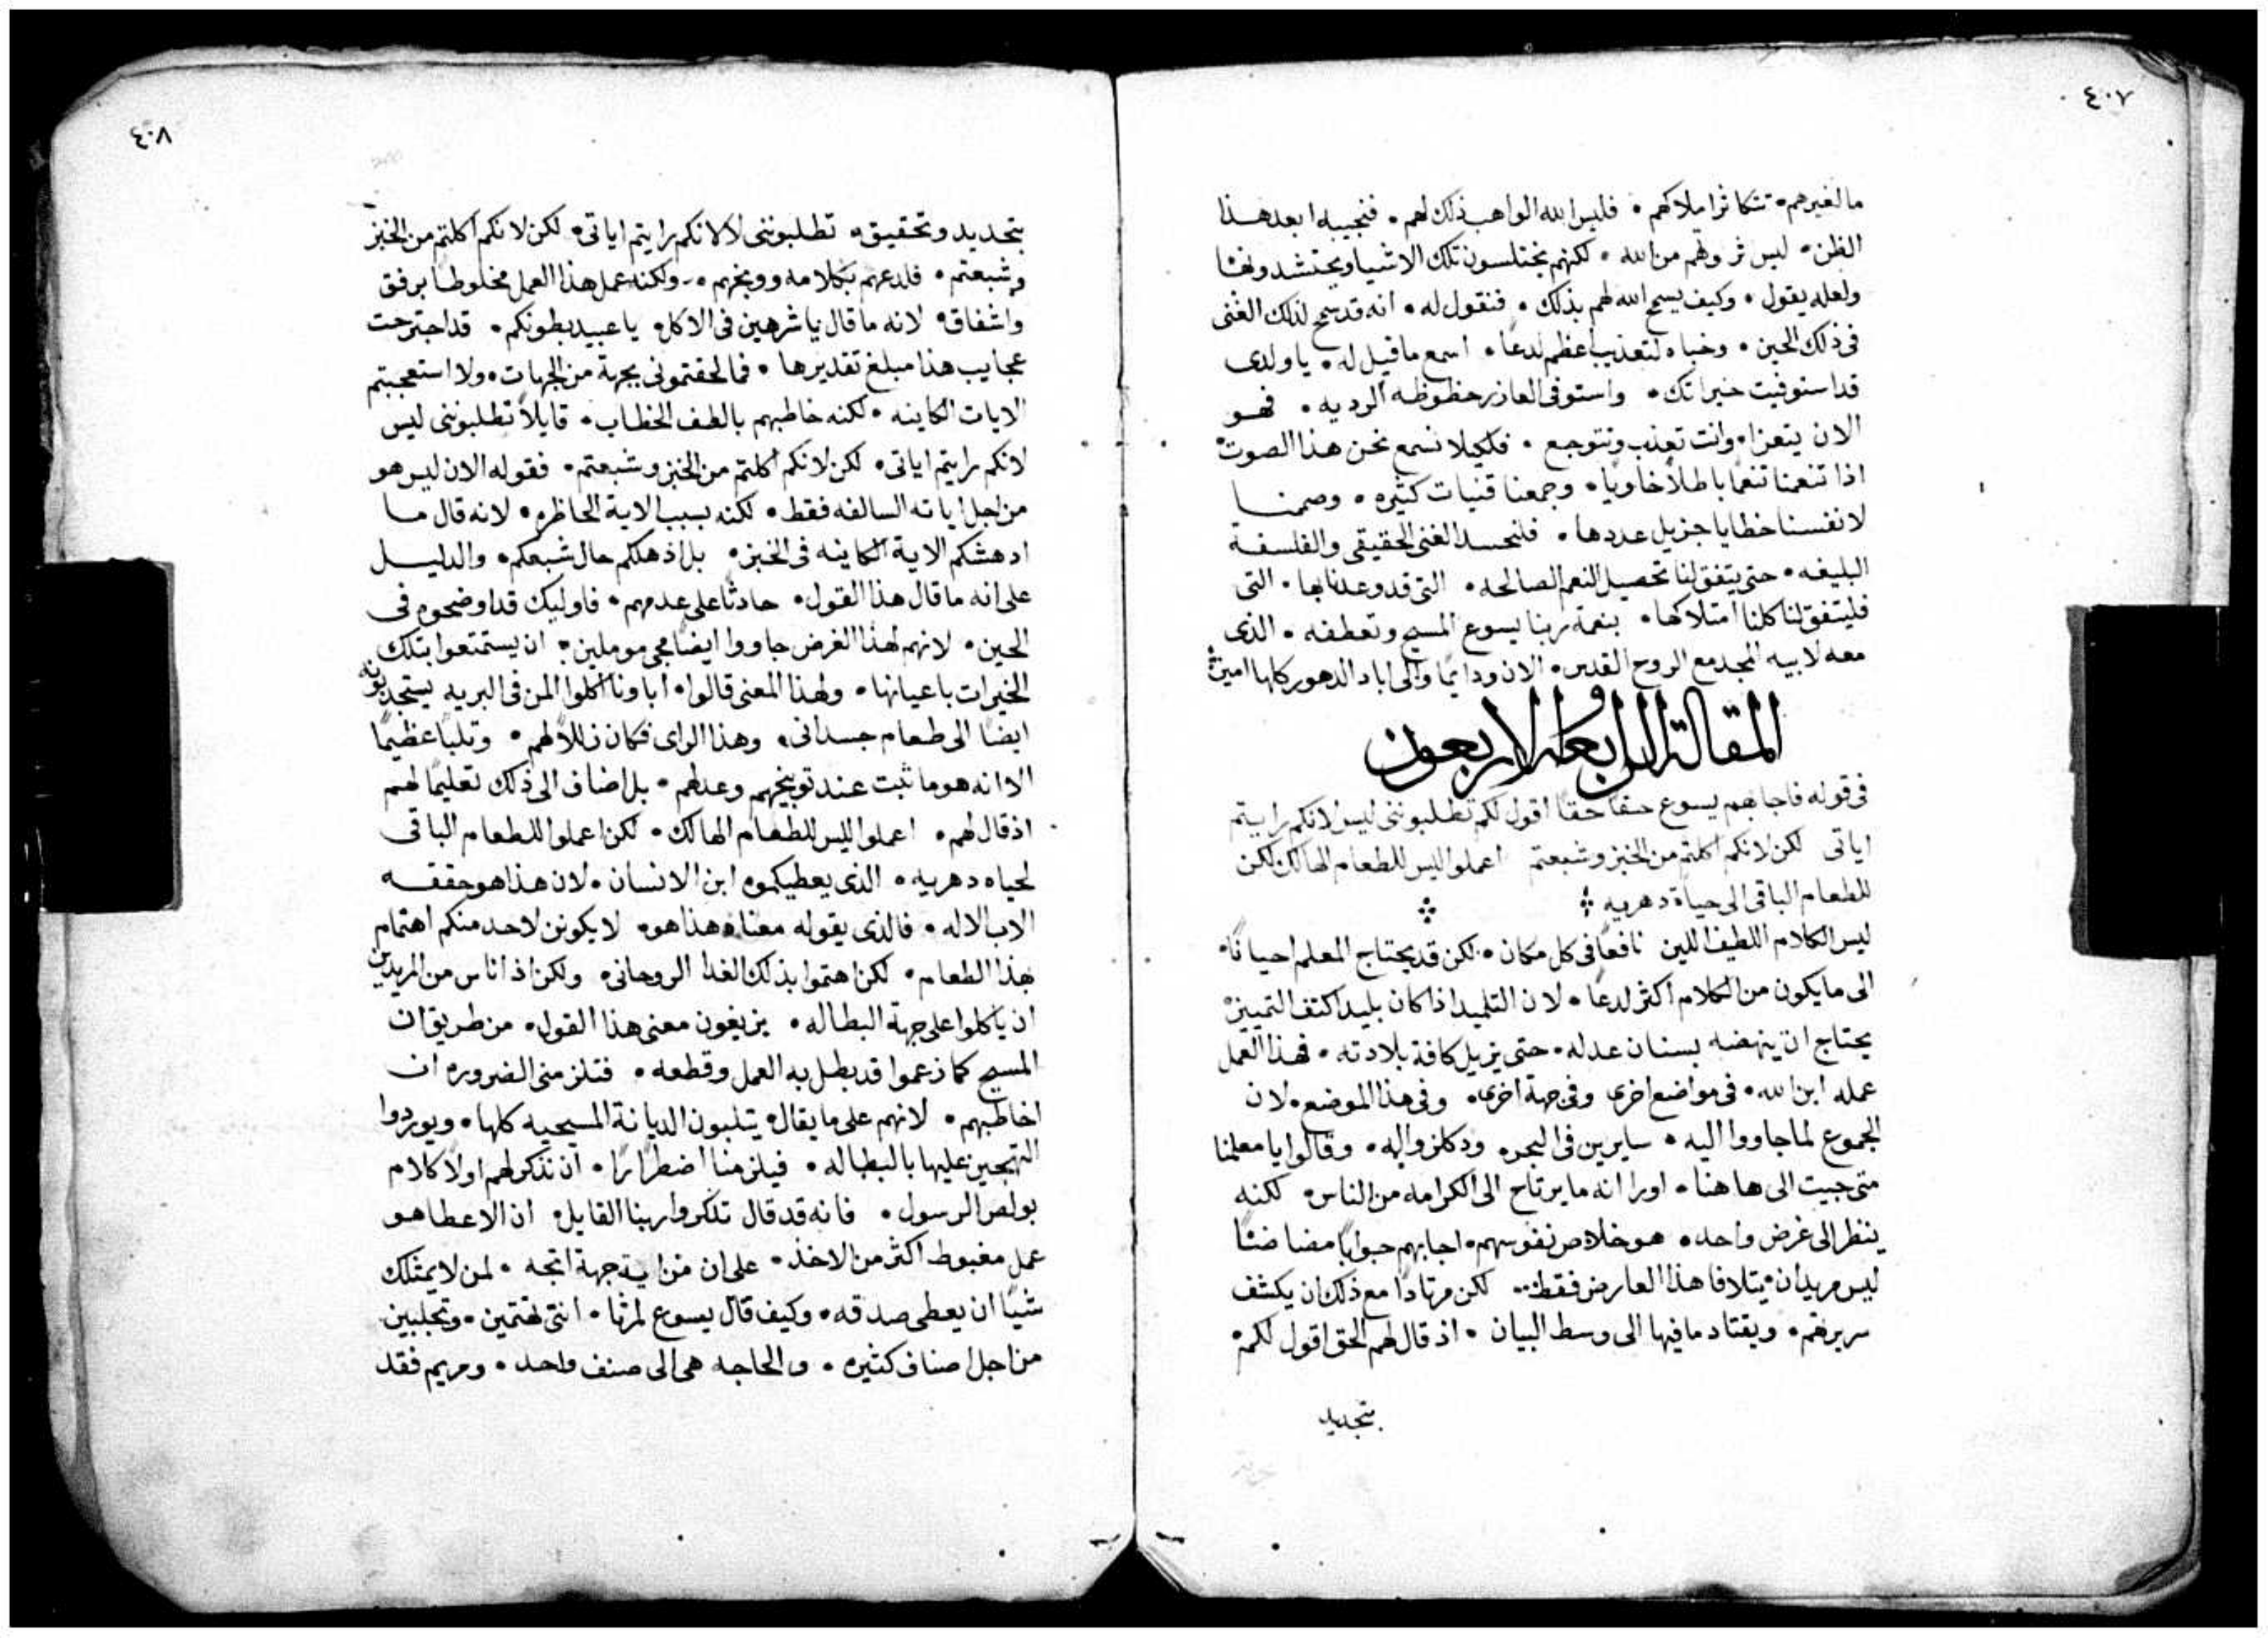 ٤٠٧
ما لغيرهم • تتكاثر املاكهم • فليس الله الواهب ذلك لهم • فنجيبه ابعد هذا
الظن • ليس ثروتهم من الله • لكنهم يختلسون تلك الاشيا ويحتشدونها
ولعله يقول • وكيف يسمح الله لهم بذلك • فنقول له • انه قد سمح لذلك الغنى
فى ذلك الحين • وخباه لتعذيب اعظم لدعًا • اسمع ما قيل له • يا ولدى
قد استوفيت خيراتك • واستوفى العازر حظوظه الرديه • فهو
الان يتعزا • وانت تعذب وتتوجع • فلكيلا نسمع نحن هذا الصوت •
اذا تنعمنا تنعمًا باطلا خاويا • وجمعنا قنيات كثيره • وصمنا
لانفسنا خطايا جزيل عددها • فلنحسد الغنى الحقيقى والفلسفة
البليغه • حتى يتفق لنا تحصيل النعم الصالحه • التى قد وعدنا بها • التى
فليتفق لنا كلنا امتلاكها • بنعمة ربنا يسوع المسيح وتعطفه • الذى
معه لابيه المجد مع الروح القدس • الان ودايمًا والى اباد الدهور كلها امين
المقالة الرابعة والاربعون
فى قوله فاجابهم يسوع حقا حقا اقول لكم تطلبوننى ليس لانكم رايتم
اياتى لكن لانكم اكلتم من الخبز وشبعتم اعملوا ليس للطعام الهالك لكن
للطعام الباقى الى حياة دهريه
ليس الكلام اللطيف اللين نافعًا فى كل مكان • لكن قد يحتاج المعلم احيانًا •
الى ما يكون من الكلام اكثر لدعًا • لان التلميد اذا كان بليدا كثف التمييز •
يحتاج ان ينهضه بسنان عدله • حتى يزيل كافة بلادته • فهذا العمل
عمله ابن الله • فى مواضع اخرى وفى جهة اخرى • وفى هذا الموضع • لان
الجموع لما جاووا اليه • سايرين فى البحر • ودكلزواله • وقالوا يا معلمنا
متى جييت الى هاهنا • اورا انه ما يرتاح الى الكرامه من الناس • لكنه
ينظر الى غرض واحد • هو خلاص نفوسهم • اجابهم جوابًا مضاضضا
ليس مريدان يتلافا هذا العارض فقط • لكن مرتادًا مع ذلك ان يكشف
سريرتهم • ويقتاد ما فيها الى وسط البيان • اذ قال لهم الحق اقول لكم •
بتجديد
٤٠٨
بتجديد وتحقيق • تطلبوننى لا لانكم رايتم اياتى • لكن لانكم اكلتم من الخبز
وشبعتم • فلدعهم بكلامه ووبخهم • ولكنه عمل هذا العمل مخلوطا برفق
واشفاق • لانه ما قال يا شرهين فى الاكل • يا عبيد بطونكم • قد اجترحت
عجايب هذا مبلغ تقديرها • فما لحقتمونى بجهة من الجهات • ولا استعجبتم
الايات الكاينه • لكنه خاطبهم بالطف الخطاب • قايلاً تطلبوننى ليس
لانكم رايتم اياتى • لكن لانكم اكلتم من الخبز وشبعتم • فقوله الان ليس هو
من اجل اياته السالفه فقط • لكنه بسبب الاية الحاظره • لانه قال ما
ادهشتكم الاية الكاينه فى الخبز • بل اذهلكم حال شبعكم • والدليل
على انه ما قال هذا القول • حادثًا على عدمهم • فاوليك قد اوضحوه فى
الحين • لانهم لهذا الغرض جاووا ايضًا مجى موملين • ان يستمتعوا بتلك
الخيرات باعيانها • ولهذا المعنى قالوا • اباونا اكلوا المن فى البريه يستجدبونه
ايضًا الى طعام جسدانى • وهذا الراى فكان زللاً لهم • وثلبًا عظيمًا
الا انه هو ما ثبت عند توبيخهم وعدلهم • بل اضاف الى ذلك تعليمًا لهم
اذ قال لهم • اعملوا ليس للطعام الهالك • لكن اعملوا للطعام الباقى
لحياه دهريه • الذى يعطيكموه ابن الانسان • لان هذا هو حققه
الاب الاله • فالذى يقوله معناه هذا هو • لا يكونن لاحد منكم اهتمام
بهذا الطعام • لكن اهتموا بذلك الغدا الروحانى • ولكن اذ اناس من المريدين
ان ياكلوا على جهة البطاله • يزيغون معنى هذا القول • من طريق ان
المسيح كما زعموا قد بطل به العمل وقطعه • فتلزمنى الضروره ان
اخاطبهم • لانهم على ما يقال • يثلبون الديانة المسيحيه كلها • ويوردوا
التهجين عليها بالبطاله • فيلزمنا اضطرارًا • ان نذكر لهم اولاً كلام
بولص الرسول • فانه قد قال تدكروا ربنا القايل • ان الاعطا هو
عمل مغبوط اكثر من الاخذ • على ان من اية جهة اتجه • لمن لا يمتلك
شيًا ان يعطى صدقه • وكيف قال يسوع لمرثا • انتى تهتمين • وتجلبين
من اجل اصناف كثيره • والحاجه هى الى صنف واحد • ومريم فقد